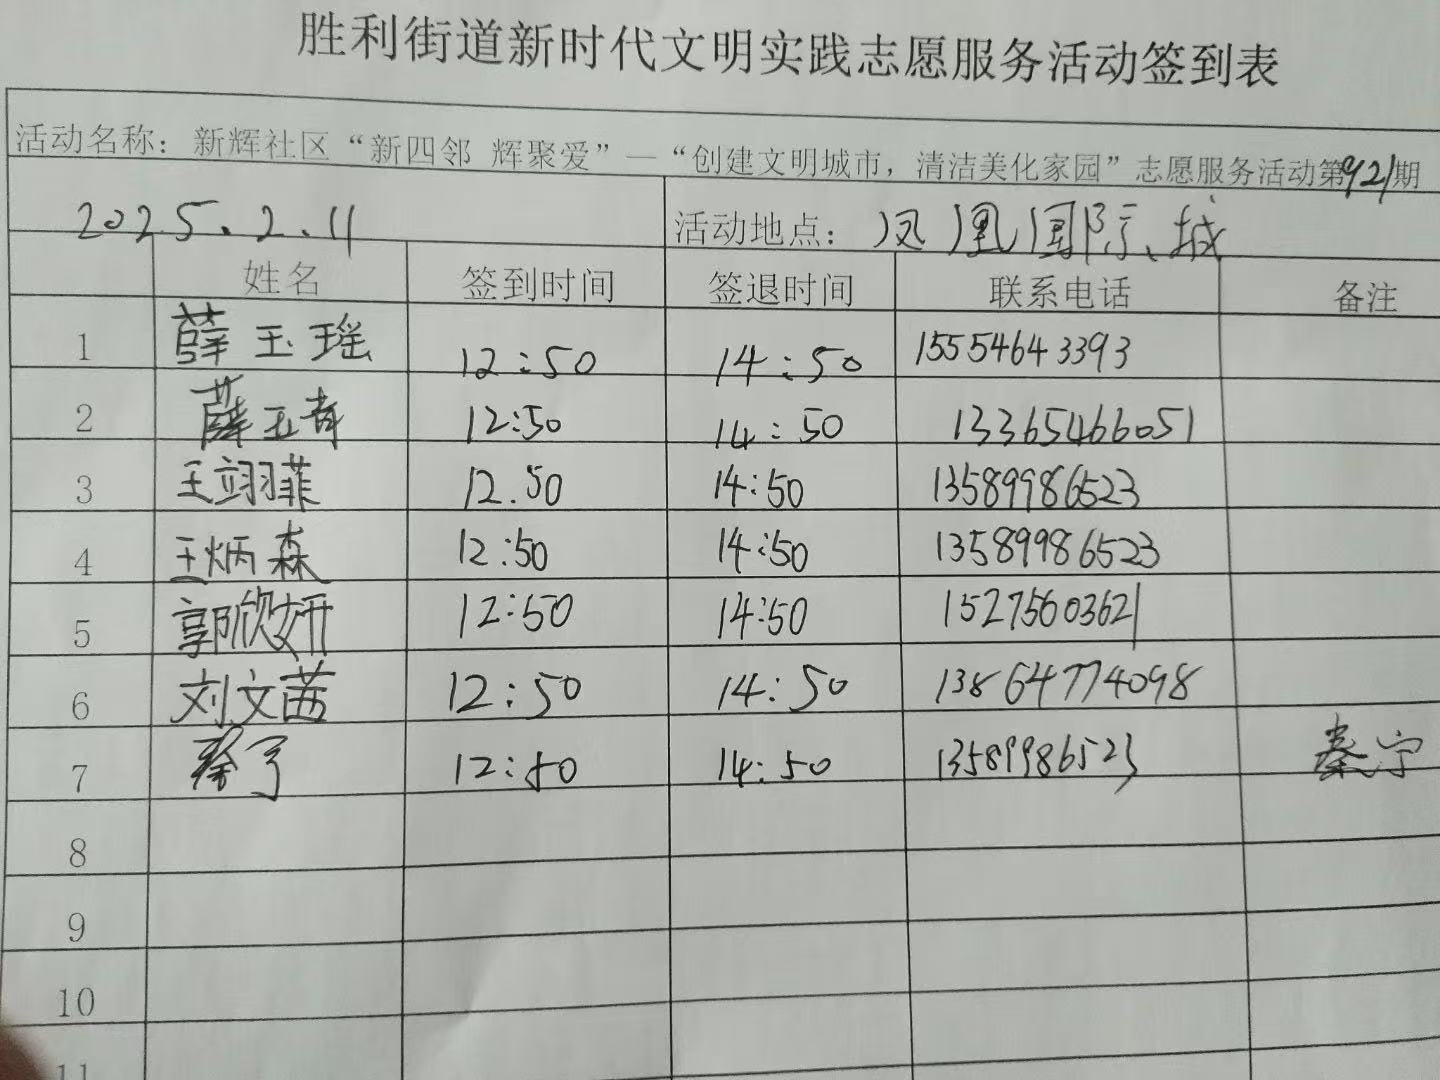 胜利街道新时代文明实践志愿服务活动签到表
活动名称：新辉社区“新四邻 辉聚爱”—“创建文明城市，清洁美化家园”志愿服务活动第921期
2025.2.11 活动地点：凤凰国际城
姓名 签到时间 签退时间 联系电话 备注
1 薛玉瑶 12:50 14:50 15554643393
2 薛玉青 12:50 14:50 13365466051
3 王翊菲 12.50 14:50 13589986523
4 王炳森 12:50 14:50 13589986523
5 郭欣妍 12:50 14:50 15275603621
6 刘文茜 12:50 14:50 13864774098
7 秦宁 12:50 14:50 13589986523 秦宁
8
9
10
11